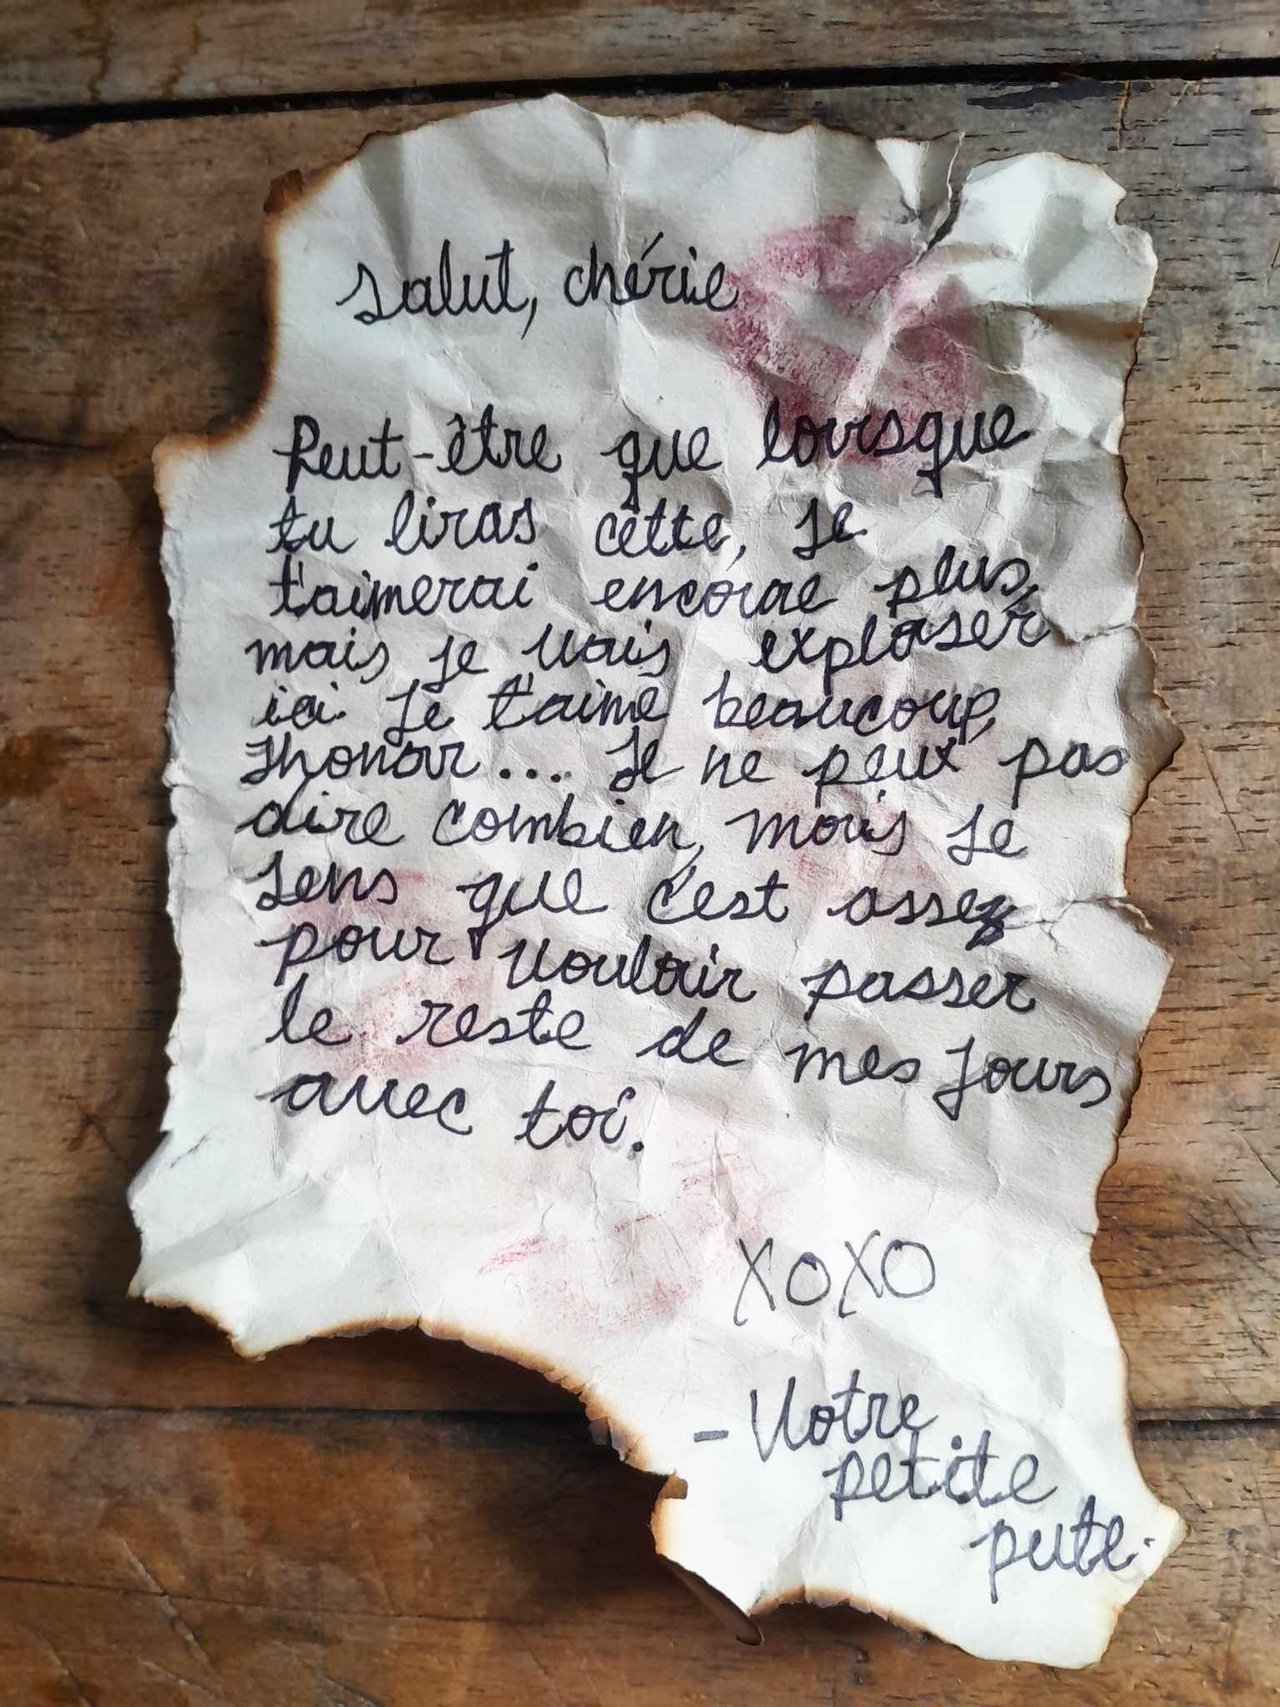 Salut, chérie
Peut-être que lorsque
tu liras cette, je
t'aimerai encorae plus,
mais je vais exploser
ici. Je t'aime beaucoup,
Jhonar.... Je ne peux pas
dire combien, mais je
sens que c'est assez
pour vouloir passer
le reste de mes jours
avec toi.
XOXO
- Votre
petite
pute.